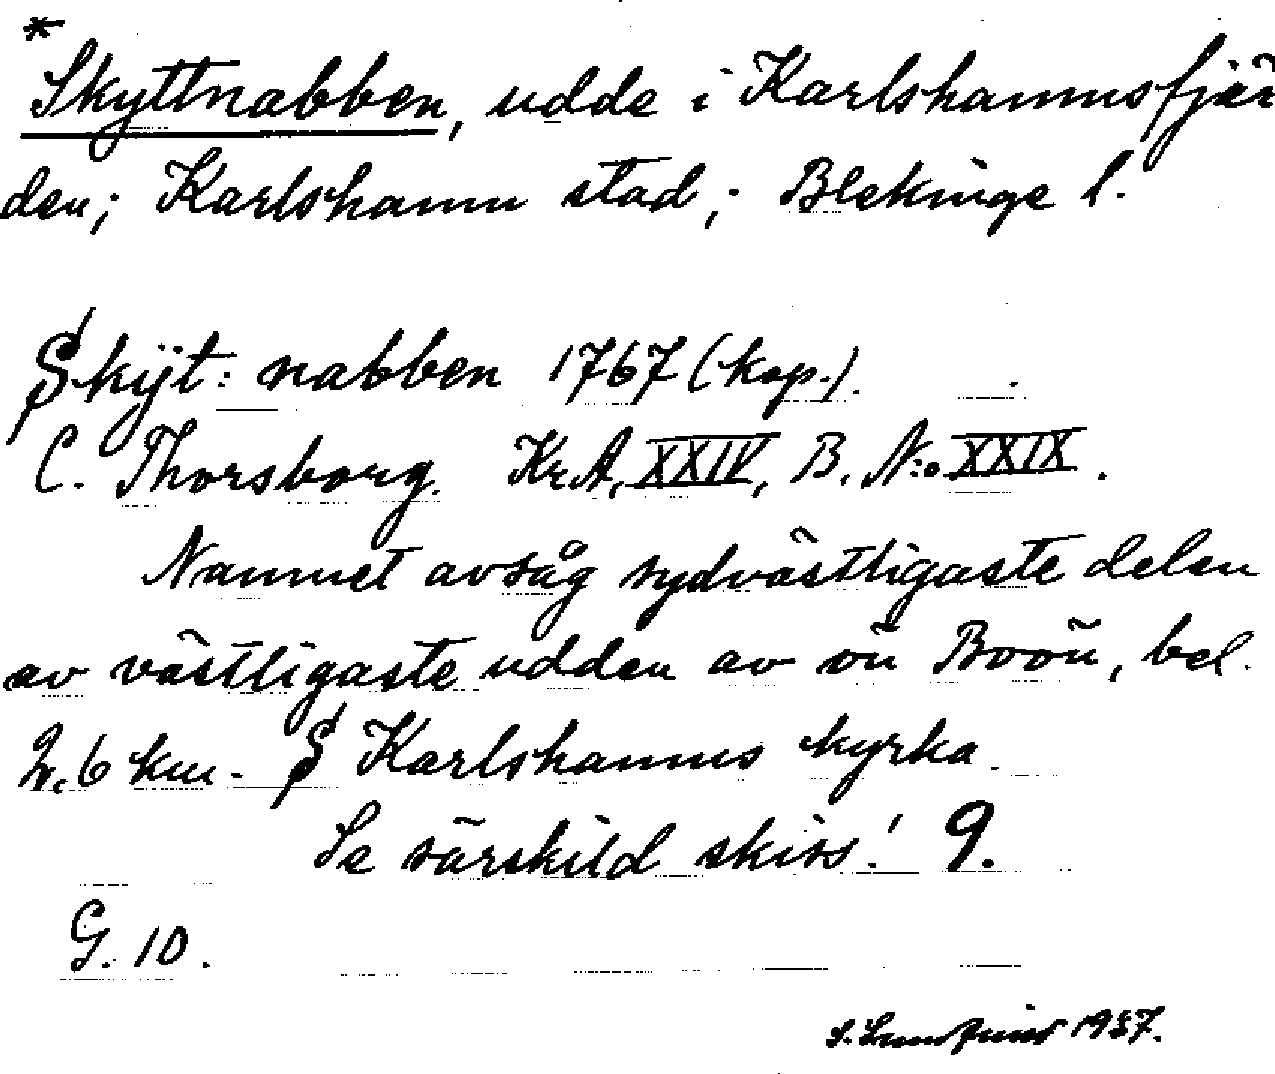 *
Skyttnabben, udde i Karlshamnsfjär
den; Karlshamn stad; Blekinge l.
Skÿt: nabben 1767 (kop.).
C. Thorsborg. Kr.A. XXIV, B. N:o XXIX.
Namnet avsåg sydvästligaste delen
av västligaste udden av ön Boön, bel.
2,6 km. S Karlshamns kyrka.
Se särskild skiss! 9.
G. 10.
S. Lundqvist 1937.